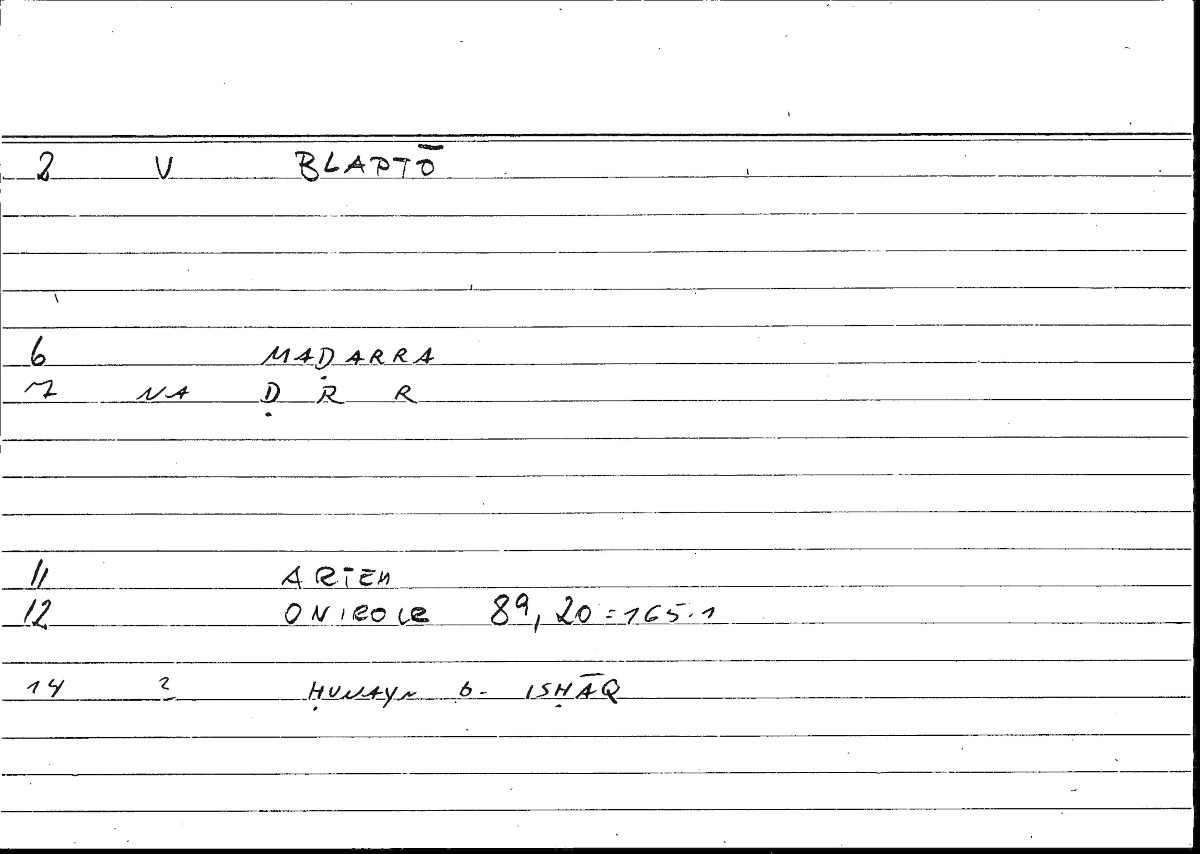 2 V BLAPTŌ
6 MAḌARRA
7 NA Ḍ R R
11 ARTEM
12 ONIROCR 89, 20 = 165.1
14 2 ḤUNAYN b. ISḤĀQ